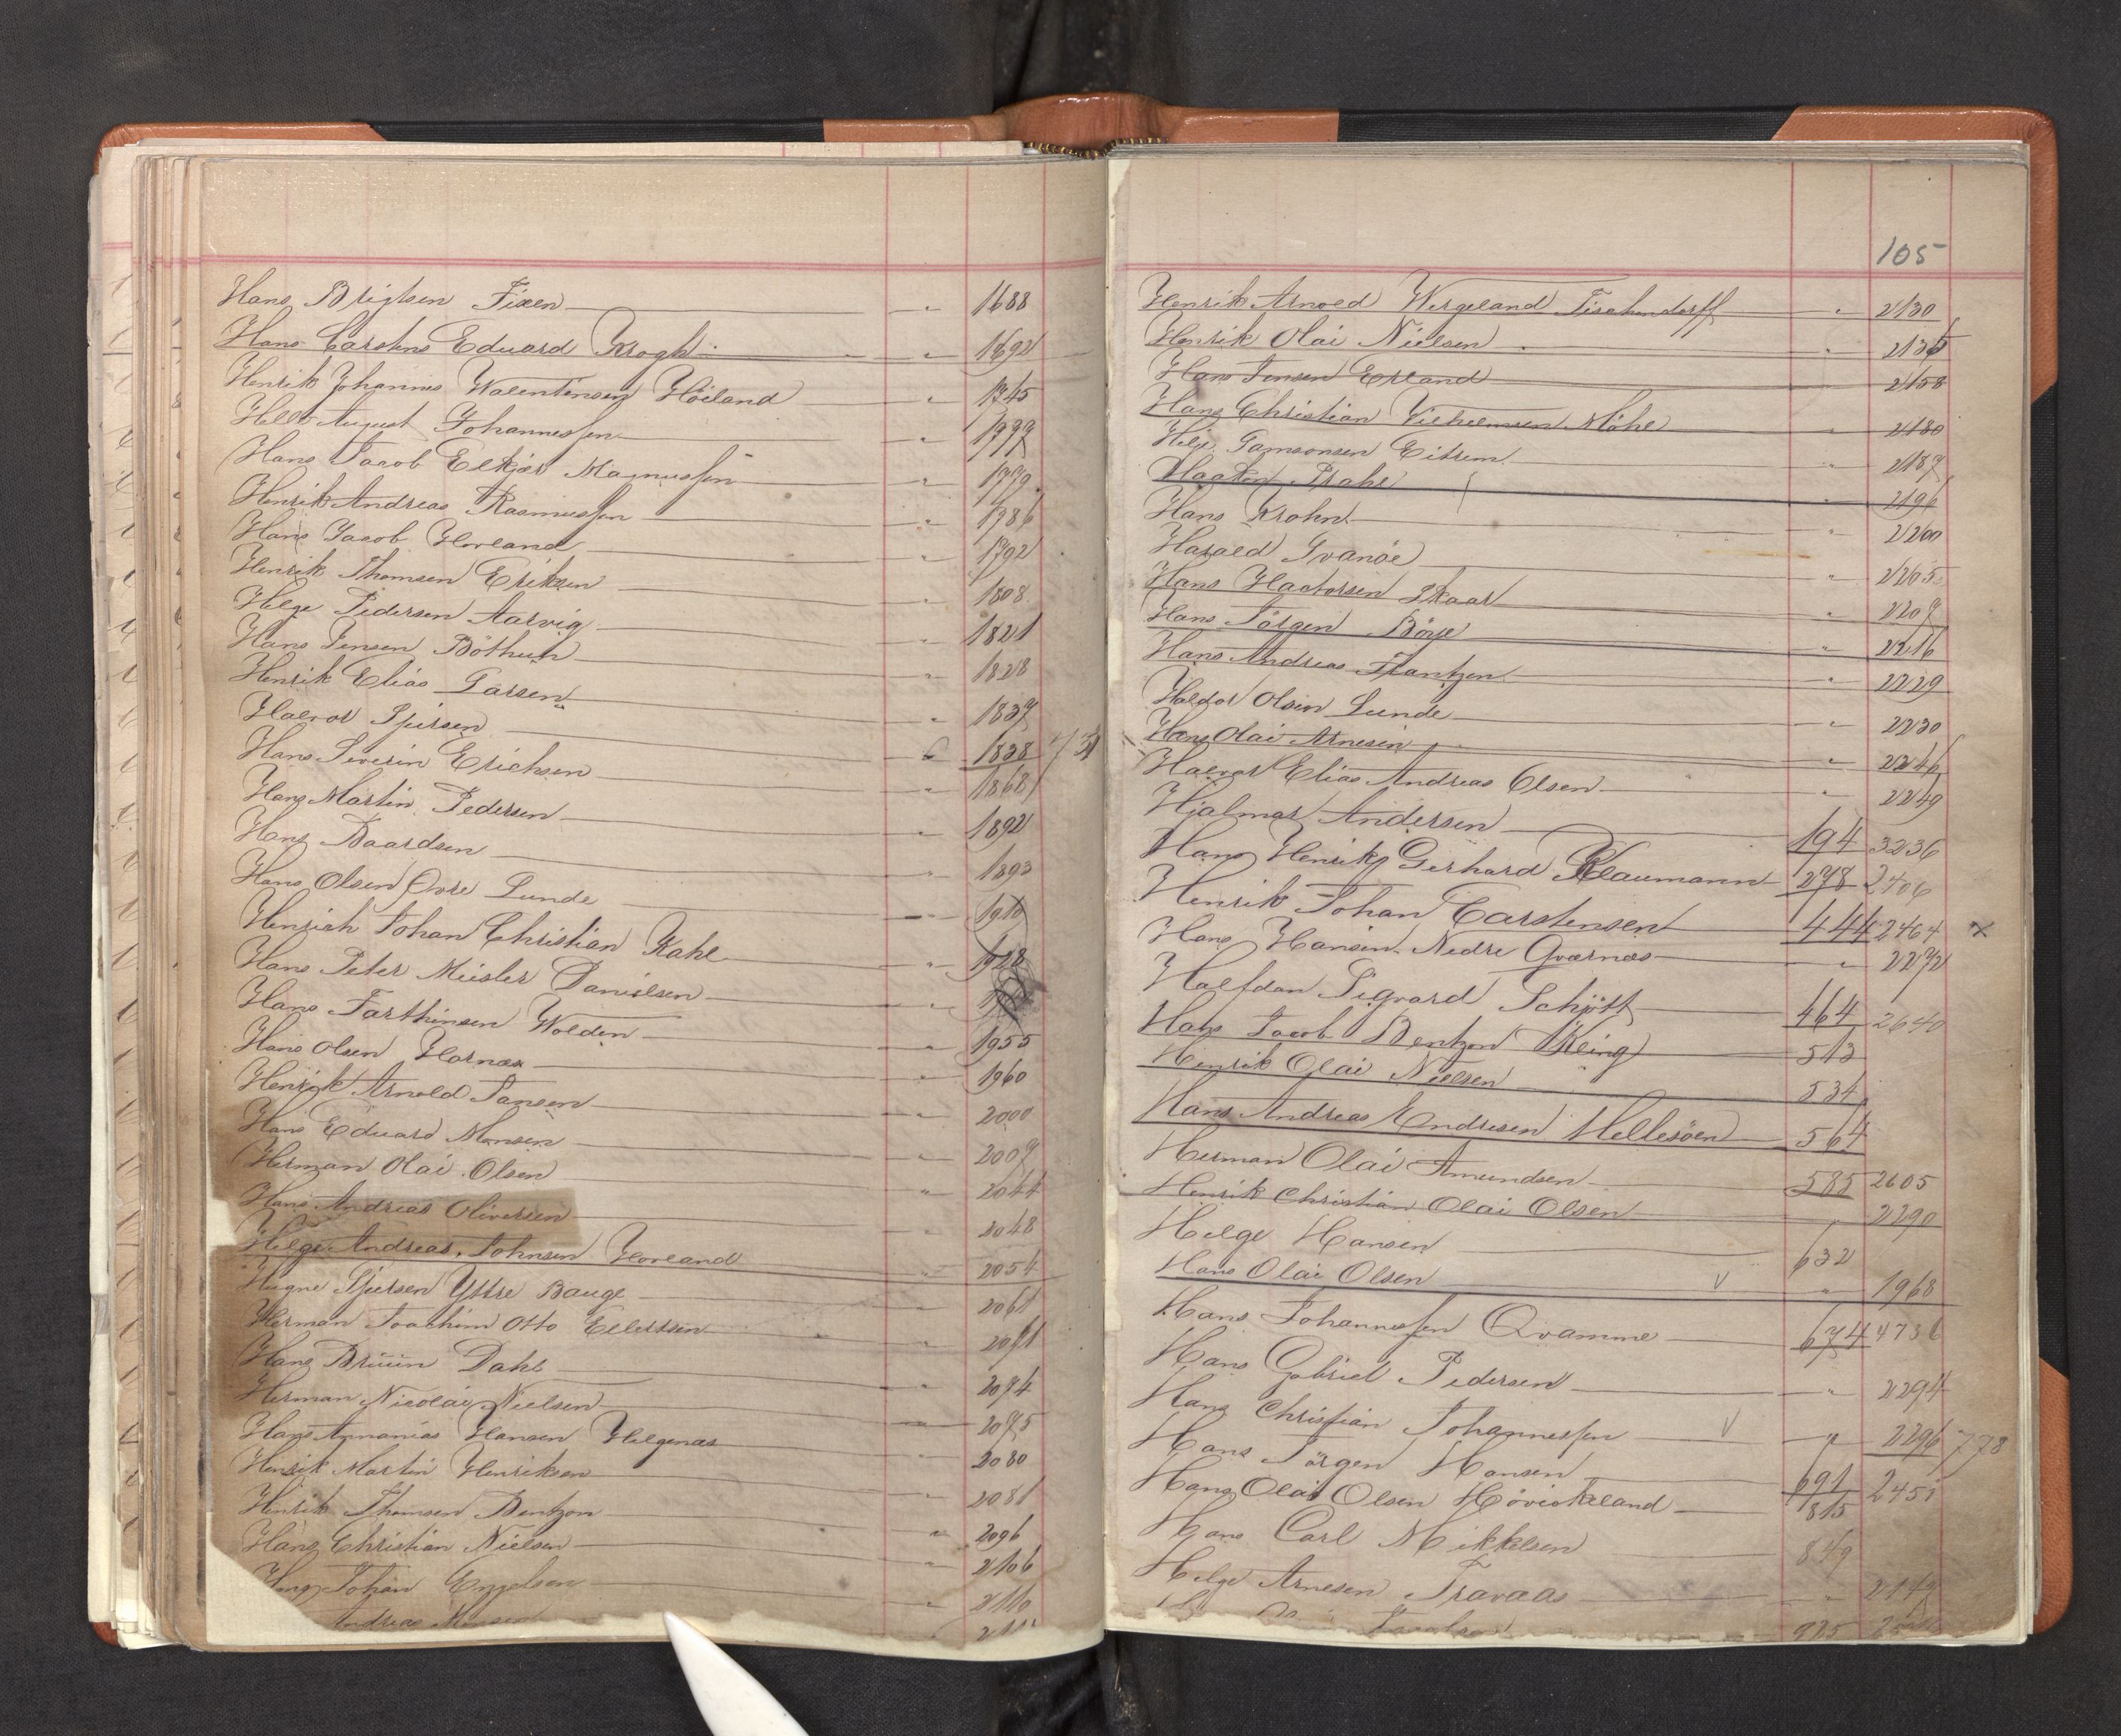 Hans Brigtsen Fixen " 1688
Hans Carstens Eduard Krogh " 1692
Henrik Johannes Walentinsen Höiland " 1745
August Johannessen " 1777
Hans Jacob Elkjær Magnussen " 1779
Henrik Andreas Rasmussen " 1786
Hans Jacob Hovland " 1792
Henrik Thomsen Eriksen " 1808
Helge Pedersen Aarvig " 1821
Hans Jensen Böthun " 1828
Henrik Elias Larsen " 1837
Halvor Sjursen " 1838
Hans Severin Erichsen " 1868
Hans Martin Pedersen " 1892
Hans Baardsen " 1893
Hans Olsen Övre Lunde " 1910
Henrich Johan Christian Kahl " 1928
Hans Peter Meisler Danielsen "
Hans Farthinsen Wolden " 1955
Hans Olsen Hornæs " 1960
Henrik Arnold Jansen " 2000
Hans Eduard Monsen " 2009
Herman Olai Olsen " 2044
Hans Andreas Oliversen " 2048
Helge Andreas Johnsen Hovland " 2054
Magne Sjursen Yttre Bauge " 2061
Herman Joachim Otto Ellertsen " 2071
Hans Brüün Dahl " 2074
Herman Nicolai Nielsen " 2075
Hans Annanias Hansen Helgenæs " 2080
Henrik Martin Henriksen " 2081
Henrik Thomsen Bentzon " 2096
Hans Christian Nielsen " 2106
Johan Engelsen " 2110
Andreas
105
Henrik Arnold Wergeland Tischendorff " 2130
Henrik Olai Nielsen " 2135
Hans Jensen Erland " 2158
Hans Christian Vilhelmsen Möhl " 2180
Helje Gamsonsen Eitrem " 2187
Haakon Brahe " 2196
Hans Krohn " 2200
Harald Svanöe " 2205
Hans Hactorsen Skaar " 2207
Hans Jörgen Börje " 2216
Hans Andreas Frantzen " 2229
Haldor Olsen Lunde " 2230
Hans Olai Arnesen " 2246
Halvor Elias Andreas Olsen " 2249
Hjalmar Andersen 194 3236
Hans Henrik Gerhard Klaumann 278 2406
Henrik Johan Carstensen 444 2464 x
Hans Hansen Nedre Qvarnæs " 2272
Halfdan Sigvard Schjött 464 2640
Hans Jacob Bentzon Kling 513
Henrik Olai Nielsen 534
Hans Andreas Endresen Hellesöen 564
Herman Olai Amundsen 585 2605
Henrik Christian Olai Olsen " 2290
Helge Hansen 632
Hans Olai Olsen V " 1968
Hans Johannessen Qvamme 674 4736
Hans Gabriel Pedersen " 2294
Hans Christian Johannessen V " 2296 778
Hans Jörgen Hansen 691 2451
Hans Olai Olsen Hövickland 815
Hans Carl Mikkelsen 849
Helge Arnesen Travaas " 2149
925